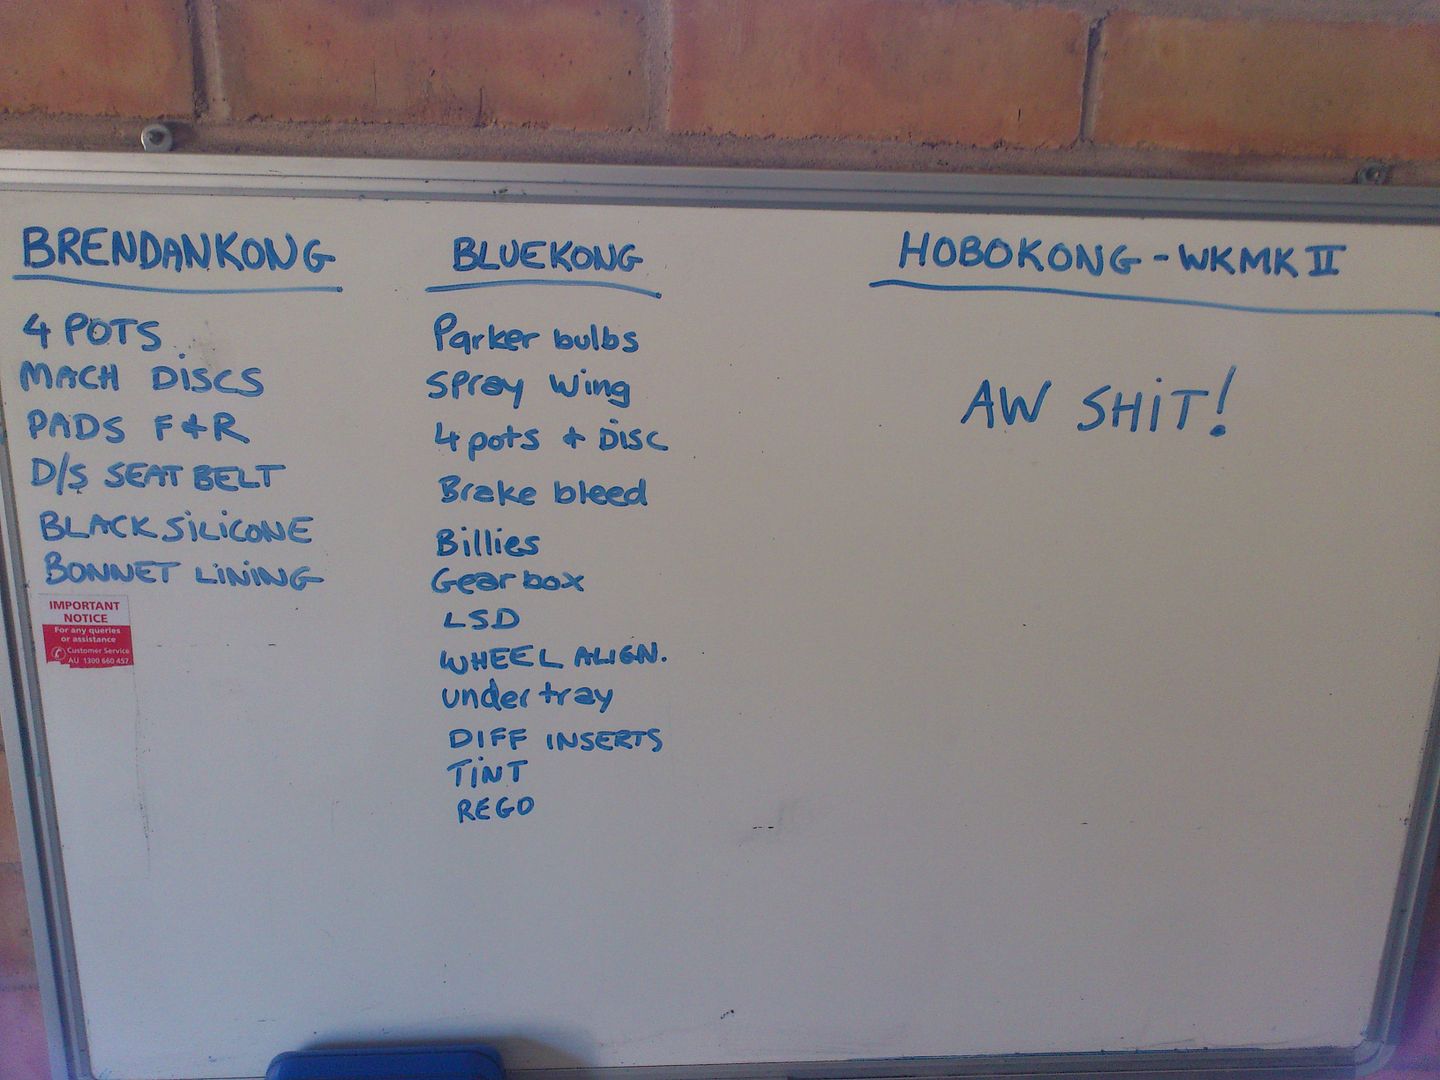 BRENDANKONG
4 POTS
MACH DISCS
PADS F & R
D/S SEAT BELT
BLACK SILICONE
BONNET LINING
IMPORTANT
NOTICE
For any queries
or assistance
Customer Service
AU 1300 660 457
BLUEKONG
Parker bulbs
Spray wing
4 pots & DISC
Brake bleed
Billies
Gearbox
LSD
WHEEL ALIGN.
under tray
DIFF INSERTS
TINT
REGO
HOBOKONG - WKMK II
AW SHIT!